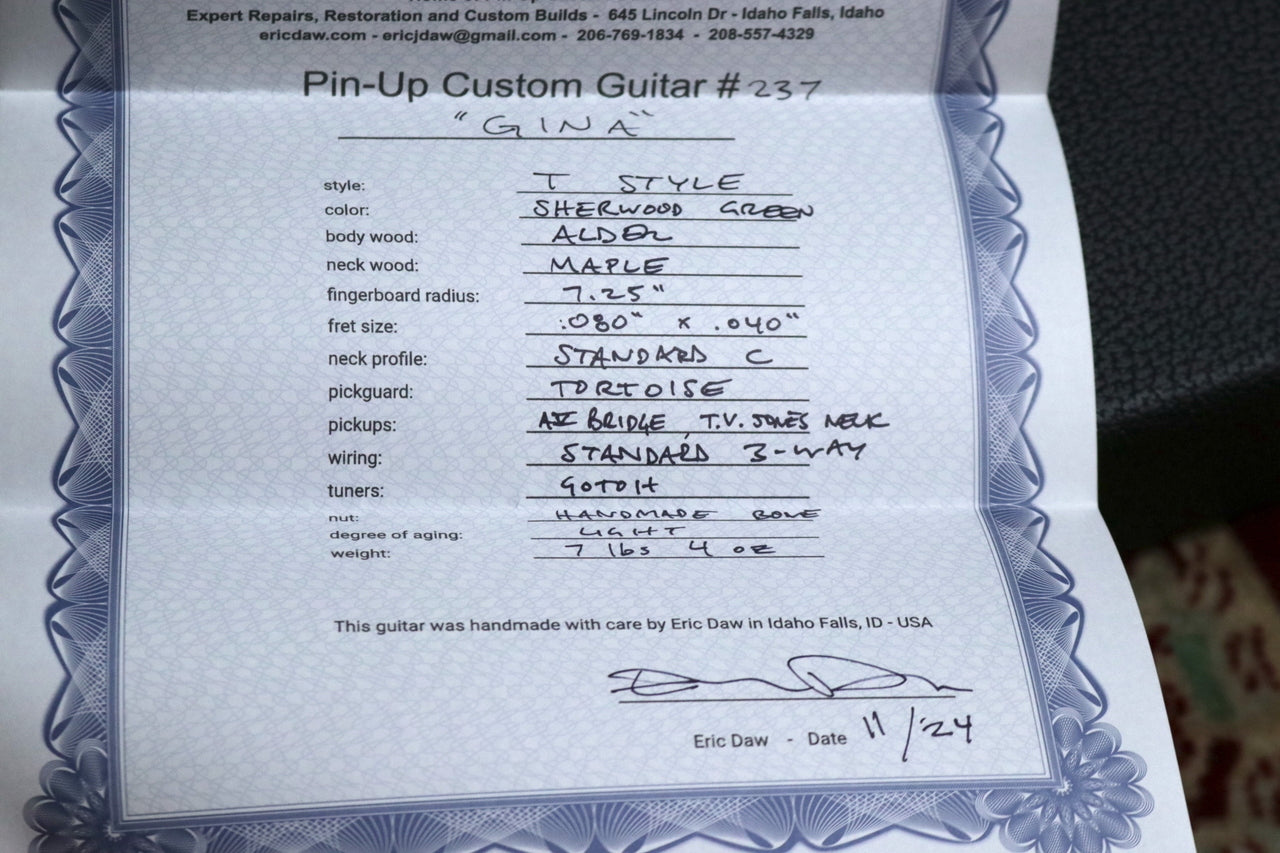 Expert Repairs, Restoration and Custom Builds - 645 Lincoln Dr - Idaho Falls, Idaho
ericdaw.com - ericjdaw@gmail.com - 206-769-1834 - 208-557-4329
Pin-Up Custom Guitar # 237
"GINA"
style: T STYLE
color: SHERWOOD GREEN
body wood: ALDER
neck wood: MAPLE
fingerboard radius: 7.25"
fret size: .080" x .040"
neck profile: STANDARD C
pickguard: TORTOISE
pickups: AV BRIDGE, T.V. JONES NECK
wiring: STANDARD 3-WAY
tuners: GOTOH
nut: HANDMADE BONE
degree of aging: LIGHT
weight: 7 lbs 4 oz
This guitar was handmade with care by Eric Daw in Idaho Falls, ID - USA
Eric Daw - Date 11/'24